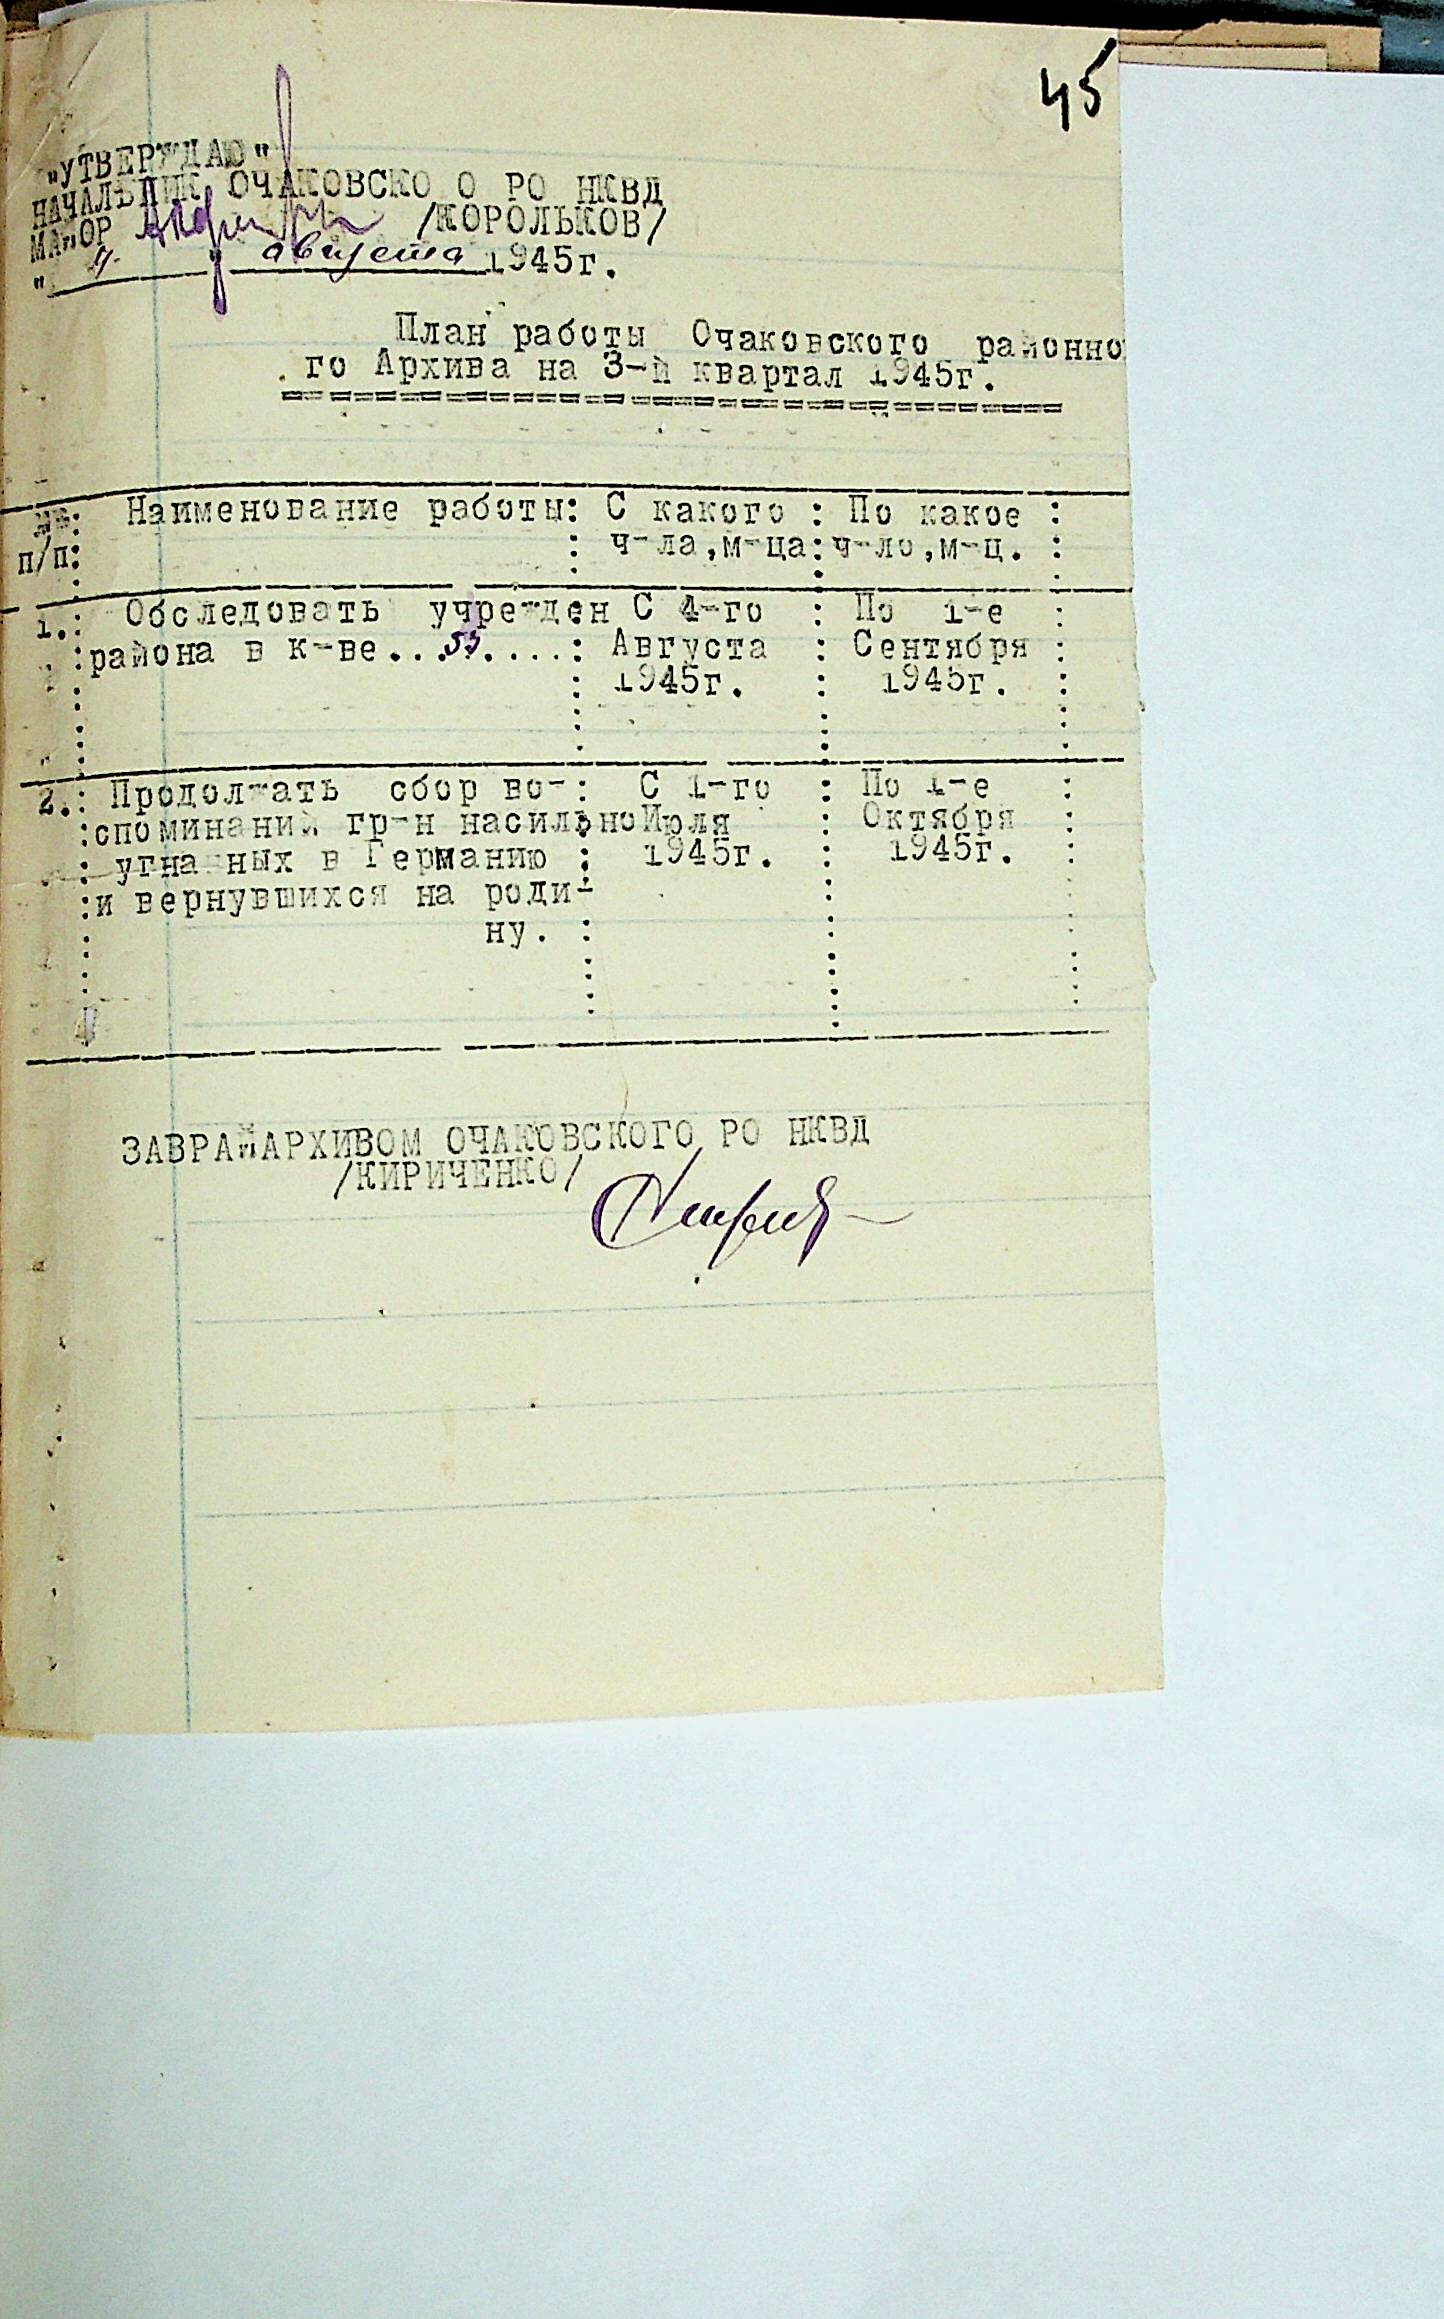 45
"УТВЕРЖДАЮ"
НАЧАЛЬНИК ОЧАКОВСКО О РО НКВД
МАЙОР /КОРОЛЬКОВ/
" 4 " августа 1945г.
План работы Очаковского районно
го Архива на 3-й квартал 1945г.
№№ : Наименование работы: С какого : По какое :
п/п: : ч-ла,м-ца: ч-ло,м-ц. :
1.: Обследовать учрежден С 4-го : По 1-е :
: района в к-ве...55.....: Августа : Сентября :
: 1945г. : 1945г. :
2.: Продолжать сбор во-: С 1-го : По 1-е :
:споминаний гр-н насильно Июля : Октября :
: угна ных в Германию : 1945г. : 1945г. :
:и вернувшихся на роди-
ну. :
ЗАВРАЙАРХИВОМ ОЧАКОВСКОГО РО НКВД
/КИРИЧЕНКО/